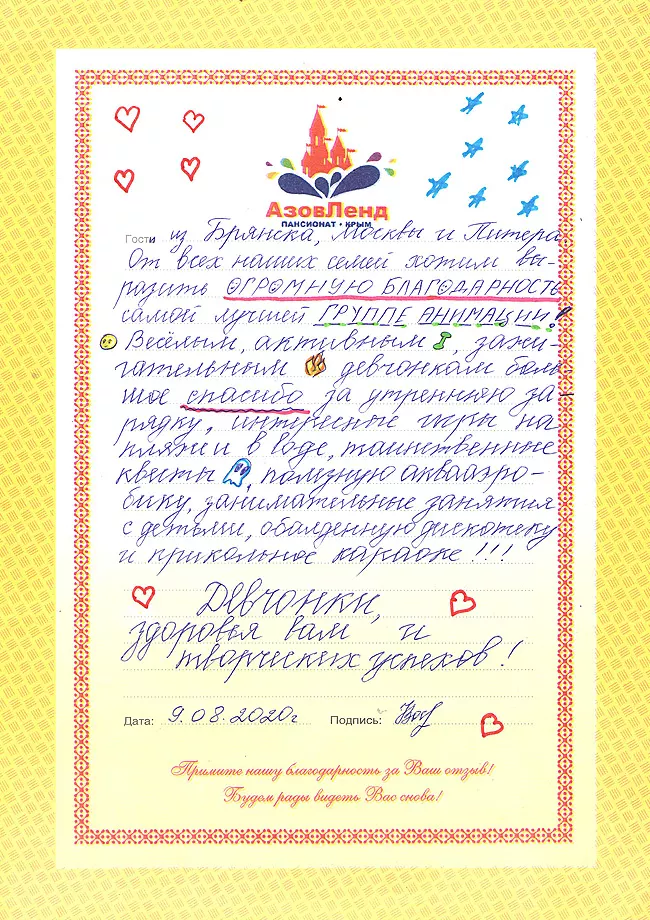 АзовЛенд
ПАНСИОНАТ • КРЫМ
Гости из Брянска, Москвы и Питера.
От всех наших семей хотим вы-
разить ОГРОМНУЮ БЛАГОДАРНОСТЬ
самой лучшей ГРУППЕ АНИМАЦИИ!
Весёлым, активным, зажи-
гательным девчонкам боль-
шое спасибо за утреннюю за-
рядку, интересные игры на
пляже и в воде, таинственные
квесты, полезную аквааэро-
бику, занимательные занятия
с детьми, обалденную дискотеку
и прикольное караоке!!!
Девчонки,
здоровья вам и
творческих успехов!
Дата: 9.08.2020г Подпись:
Примите нашу благодарность за Ваш отзыв!
Будем рады видеть Вас снова!